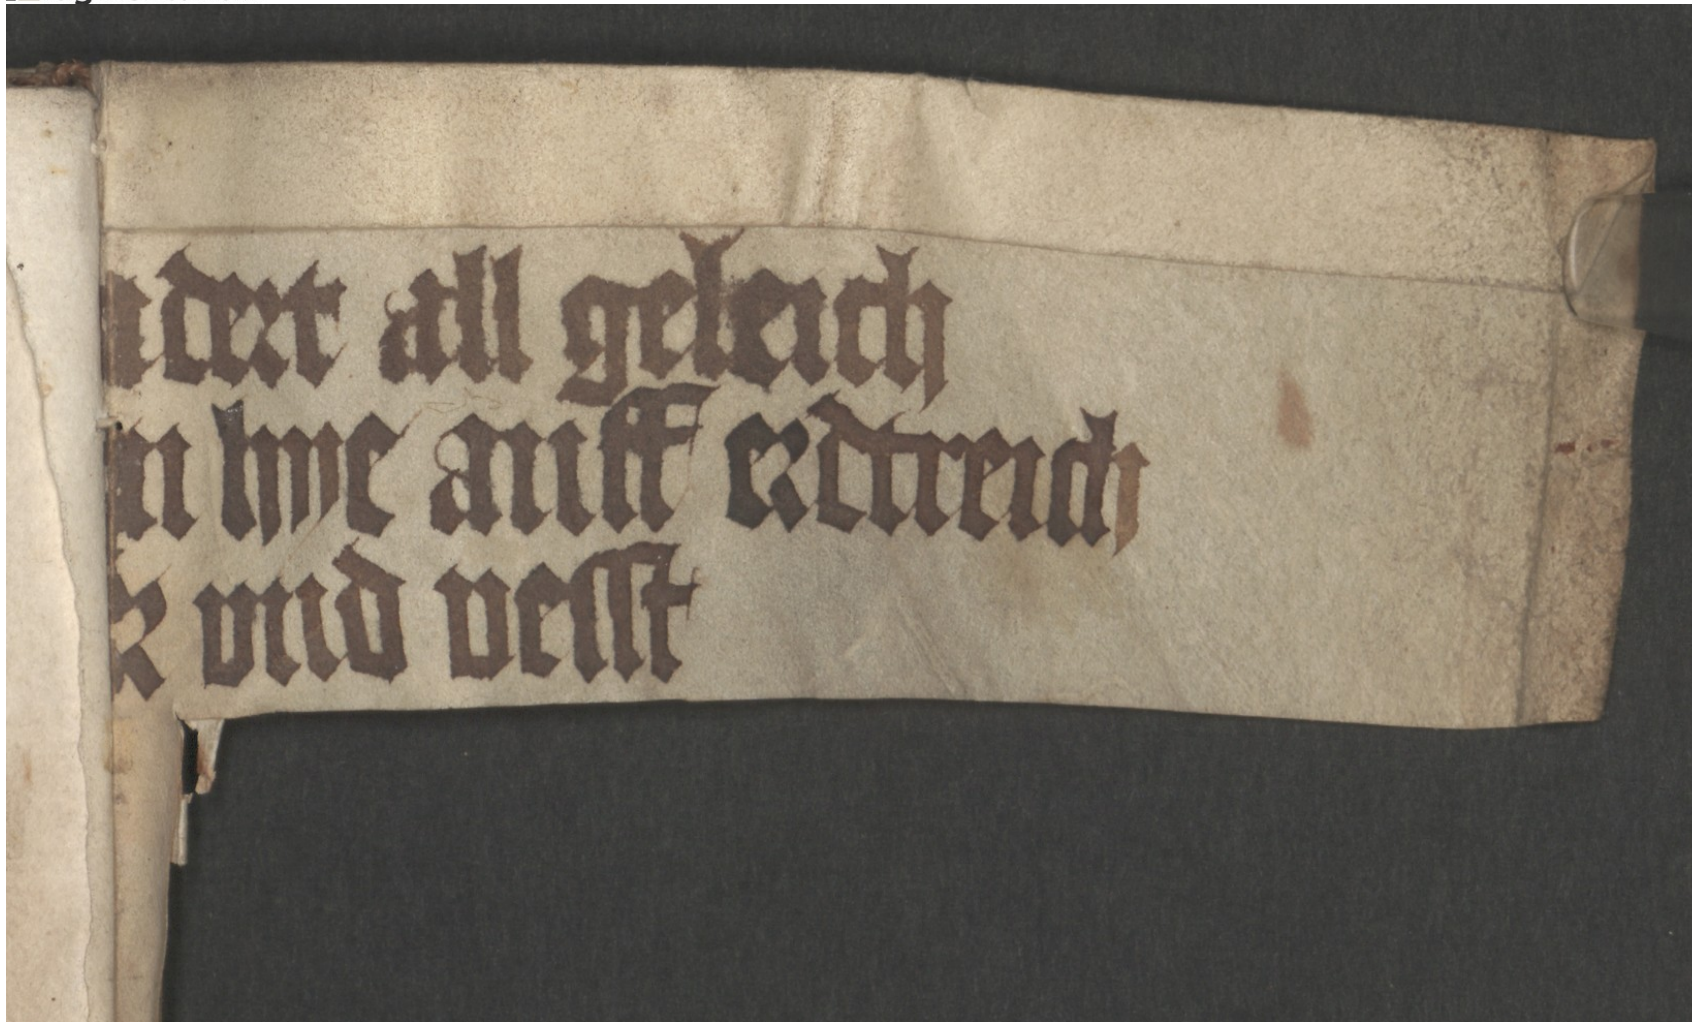 ndert all geleich
n hye auff erdtreich
r vnd vesst